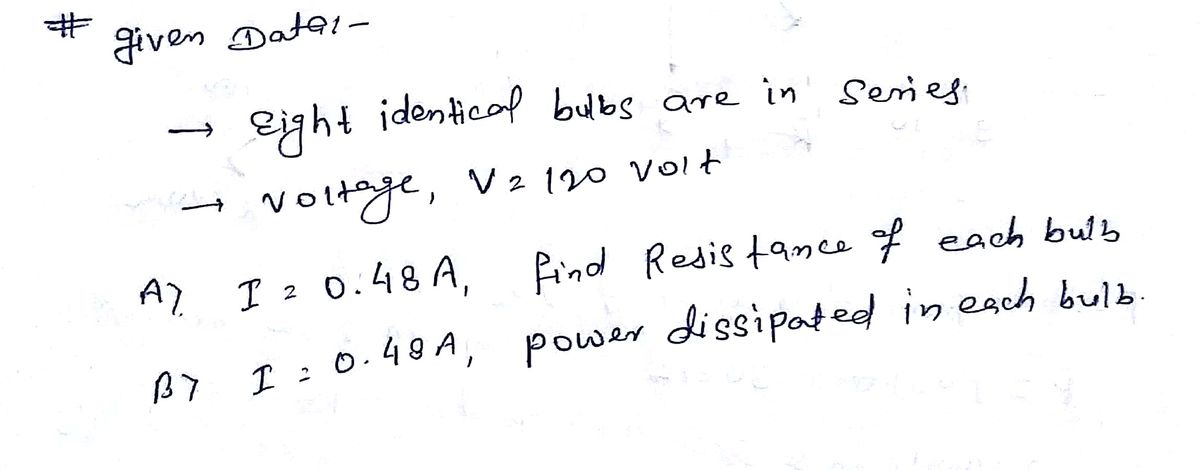 # given Data:-
→ Eight identical bulbs are in series.
→ Voltage, V = 120 volt
A) I = 0.48 A, find Resistance of each bulb
B) I = 0.48 A, power dissipated in each bulb.